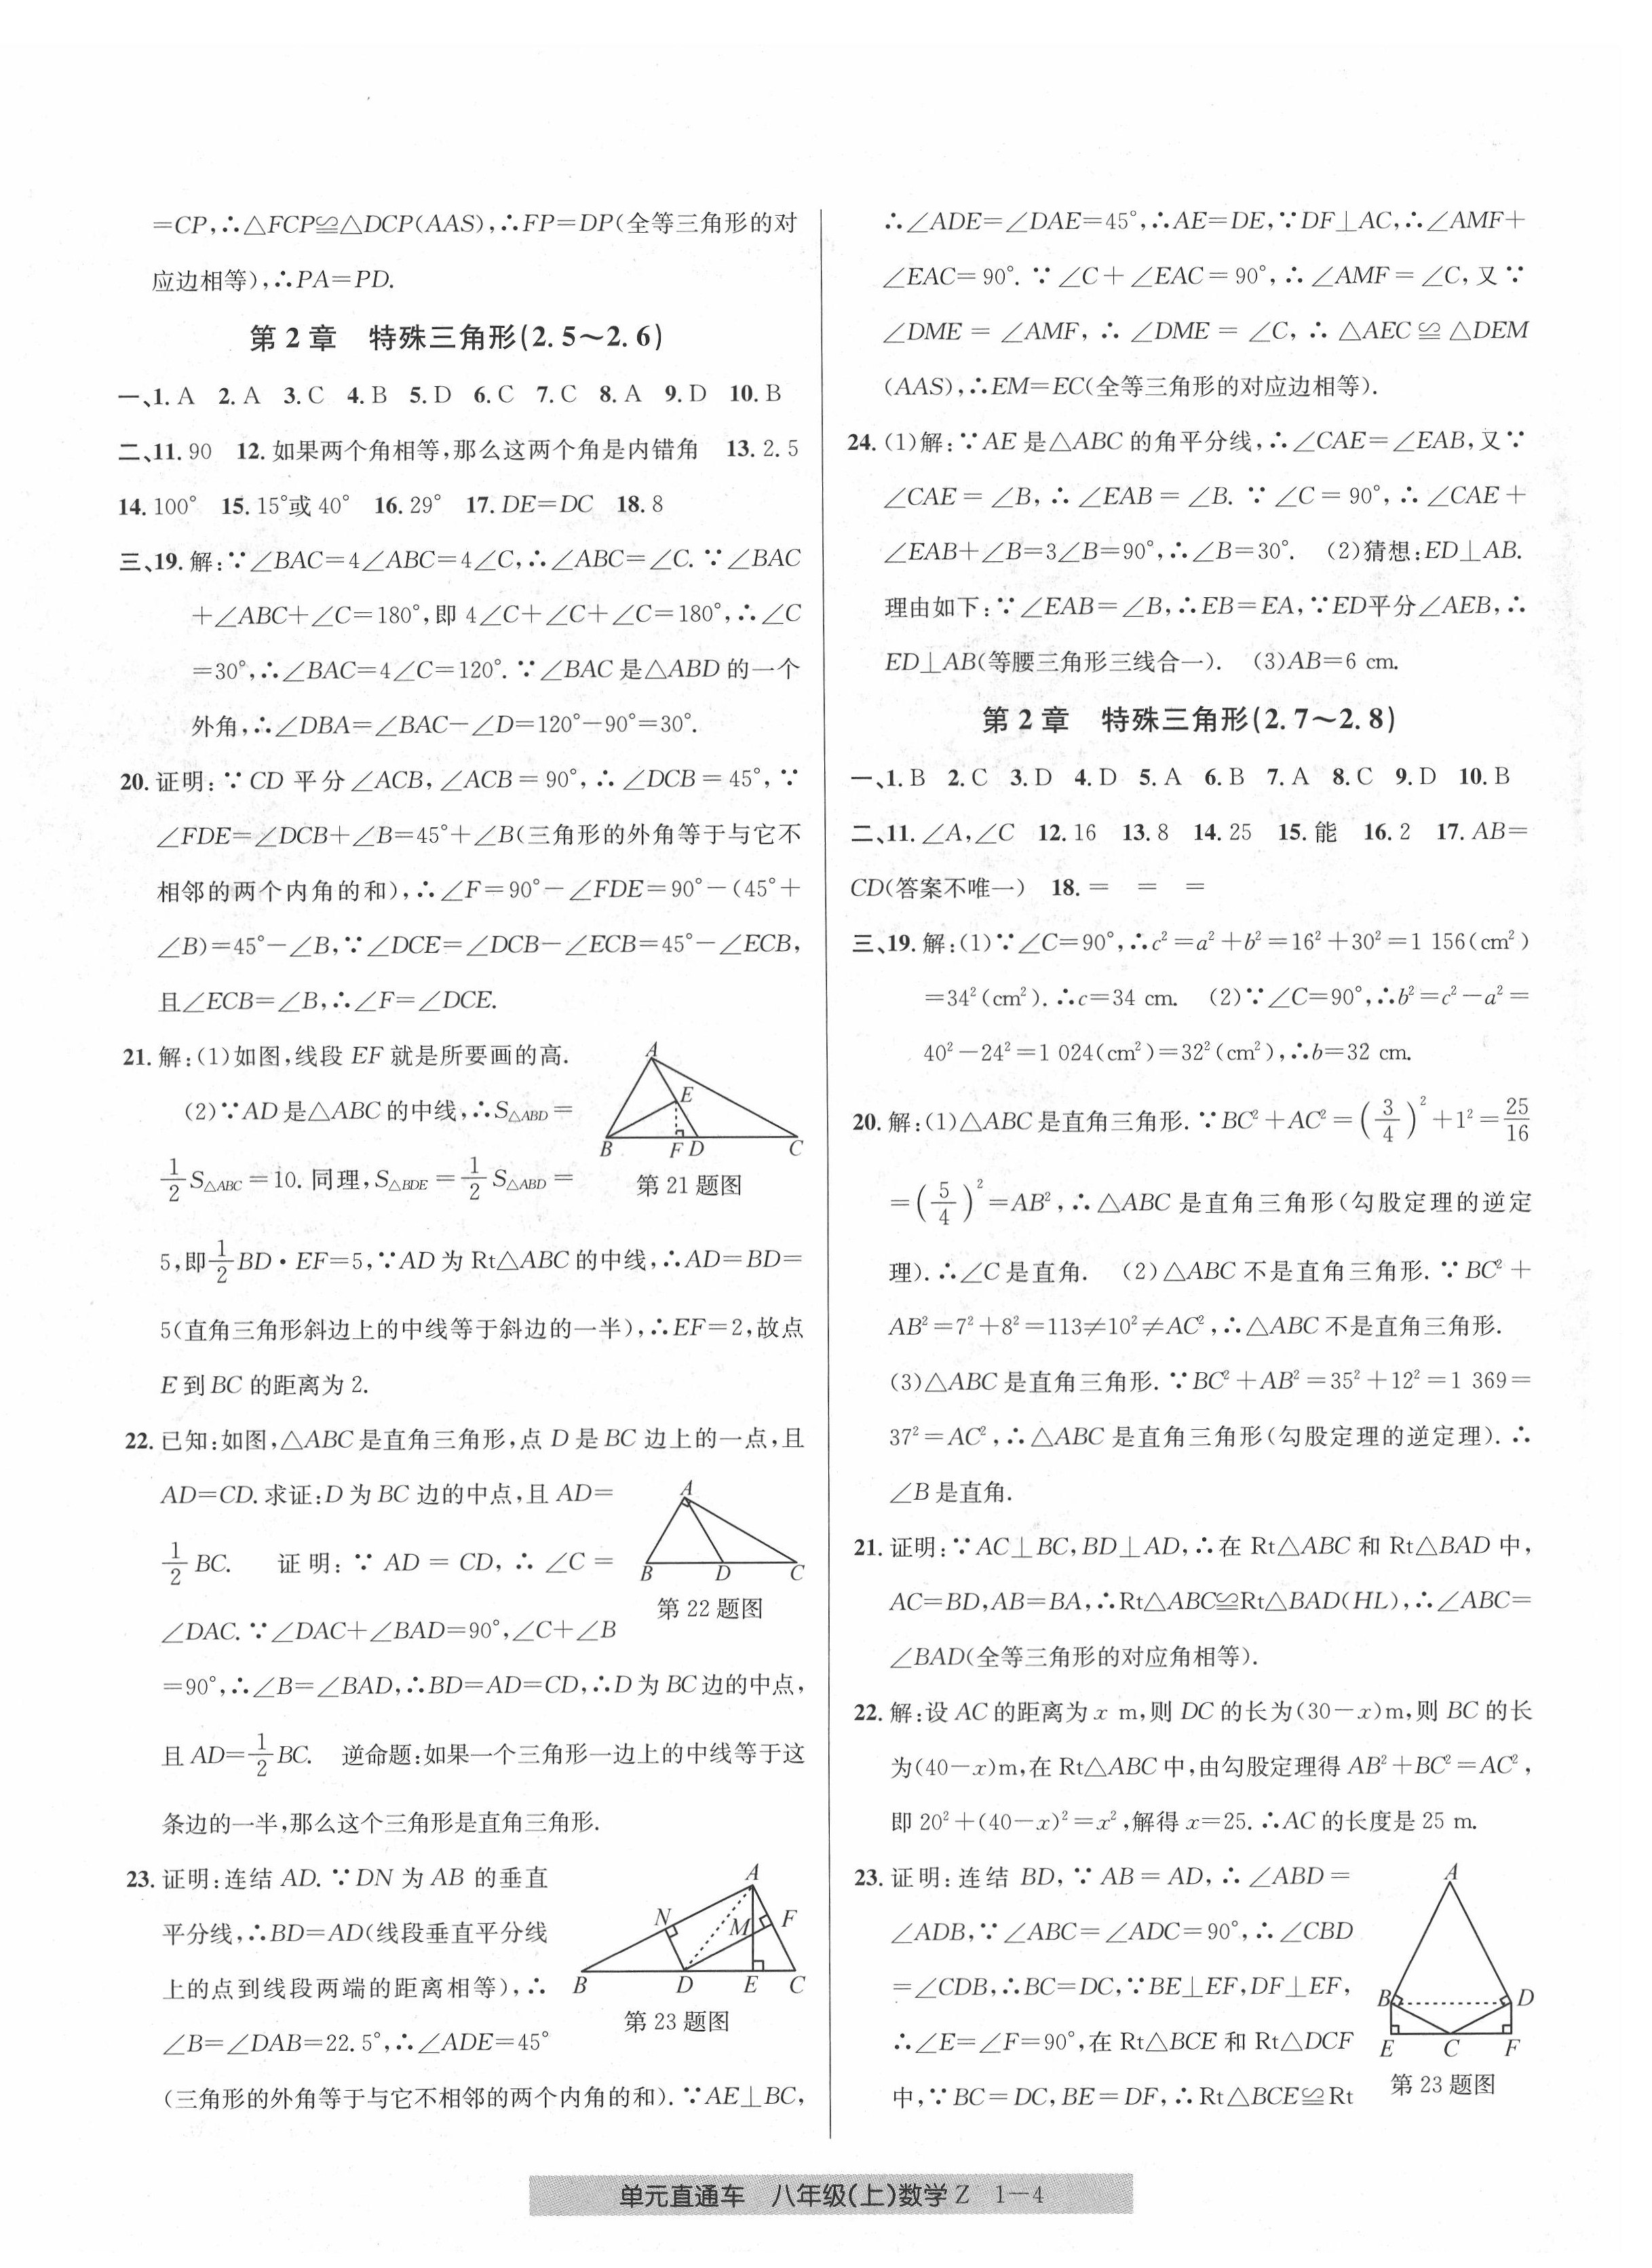 =CP,∴△FCP≌△DCP(AAS),∴FP=DP(全等三角形的对
应边相等),∴PA=PD.
第2章 特殊三角形(2.5~2.6)
一、1.A 2.A 3.C 4.B 5.D 6.C 7.C 8.A 9.D 10.B
二、11.90 12.如果两个角相等,那么这两个角是内错角 13.2.5
14.100° 15.15°或40° 16.29° 17.DE=DC 18.8
三、19.解:∵∠BAC=4∠ABC=4∠C,∴∠ABC=∠C.∵∠BAC
+∠ABC+∠C=180°,即4∠C+∠C+∠C=180°,∴∠C
=30°,∴∠BAC=4∠C=120°.∵∠BAC是△ABD的一个
外角,∴∠DBA=∠BAC-∠D=120°-90°=30°.
20.证明:∵CD平分∠ACB,∠ACB=90°,∴∠DCB=45°,∵
∠FDE=∠DCB+∠B=45°+∠B(三角形的外角等于与它不
相邻的两个内角的和),∴∠F=90°-∠FDE=90°-(45°+
∠B)=45°-∠B,∵∠DCE=∠DCB-∠ECB=45°-∠ECB,
且∠ECB=∠B,∴∠F=∠DCE.
21.解:(1)如图,线段EF就是所要画的高.
(2)∵AD是△ABC的中线,∴S△ABD=
1/2 S△ABC=10.同理,S△BDE=1/2 S△ABD=
A
E
B F D C
第21题图
5,即1/2 BD·EF=5,∵AD为Rt△ABC的中线,∴AD=BD=
5(直角三角形斜边上的中线等于斜边的一半),∴EF=2,故点
E到BC的距离为2.
22.已知:如图,△ABC是直角三角形,点D是BC边上的一点,且
AD=CD.求证:D为BC边的中点,且AD=
1/2 BC. 证明:∵AD=CD,∴∠C=
∠DAC.∵∠DAC+∠BAD=90°,∠C+∠B
A
B D C
第22题图
=90°,∴∠B=∠BAD,∴BD=AD=CD,∴D为BC边的中点,
且AD=1/2 BC. 逆命题:如果一个三角形一边上的中线等于这
条边的一半,那么这个三角形是直角三角形.
23.证明:连结AD.∵DN为AB的垂直
平分线,∴BD=AD(线段垂直平分线
上的点到线段两端的距离相等),∴
∠B=∠DAB=22.5°,∴∠ADE=45°
A
N M F
B D E C
第23题图
(三角形的外角等于与它不相邻的两个内角的和).∵AE⊥BC,
∴∠ADE=∠DAE=45°,∴AE=DE,∵DF⊥AC,∴∠AMF+
∠EAC=90°.∵∠C+∠EAC=90°,∴∠AMF=∠C,又∵
∠DME=∠AMF,∴∠DME=∠C,∴△AEC≌△DEM
(AAS),∴EM=EC(全等三角形的对应边相等).
24.(1)解:∵AE是△ABC的角平分线,∴∠CAE=∠EAB,又∵
∠CAE=∠B,∴∠EAB=∠B.∵∠C=90°,∴∠CAE+
∠EAB+∠B=3∠B=90°,∴∠B=30°. (2)猜想:ED⊥AB.
理由如下:∵∠EAB=∠B,∴EB=EA,∵ED平分∠AEB,∴
ED⊥AB(等腰三角形三线合一). (3)AB=6 cm.
第2章 特殊三角形(2.7~2.8)
一、1.B 2.C 3.D 4.D 5.A 6.B 7.A 8.C 9.D 10.B
二、11.∠A,∠C 12.16 13.8 14.25 15.能 16.2 17.AB=
CD(答案不唯一) 18.= = =
三、19.解:(1)∵∠C=90°,∴c²=a²+b²=16²+30²=1 156(cm²)
=34²(cm²).∴c=34 cm. (2)∵∠C=90°,∴b²=c²-a²=
40²-24²=1 024(cm²)=32²(cm²),∴b=32 cm.
20.解:(1)△ABC是直角三角形.∵BC²+AC²=(3/4)²+1²=25/16
=(5/4)²=AB²,∴△ABC是直角三角形(勾股定理的逆定
理).∴∠C是直角. (2)△ABC不是直角三角形.∵BC²+
AB²=7²+8²=113≠10²≠AC²,∴△ABC不是直角三角形.
(3)△ABC是直角三角形.∵BC²+AB²=35²+12²=1 369=
37²=AC²,∴△ABC是直角三角形(勾股定理的逆定理).∴
∠B是直角.
21.证明:∵AC⊥BC,BD⊥AD,∴在Rt△ABC和Rt△BAD中,
AC=BD,AB=BA,∴Rt△ABC≌Rt△BAD(HL),∴∠ABC=
∠BAD(全等三角形的对应角相等).
22.解:设AC的距离为x m,则DC的长为(30-x)m,则BC的长
为(40-x)m,在Rt△ABC中,由勾股定理得AB²+BC²=AC²,
即20²+(40-x)²=x²,解得x=25.∴AC的长度是25 m.
23.证明:连结BD,∵AB=AD,∴∠ABD=
∠ADB,∵∠ABC=∠ADC=90°,∴∠CBD
=∠CDB,∴BC=DC,∵BE⊥EF,DF⊥EF,
∴∠E=∠F=90°,在Rt△BCE和Rt△DCF
中,∵BC=DC,BE=DF,∴Rt△BCE≌Rt
A
B D
E C F
第23题图
单元直通车 八年级(上)数学Z 1-4